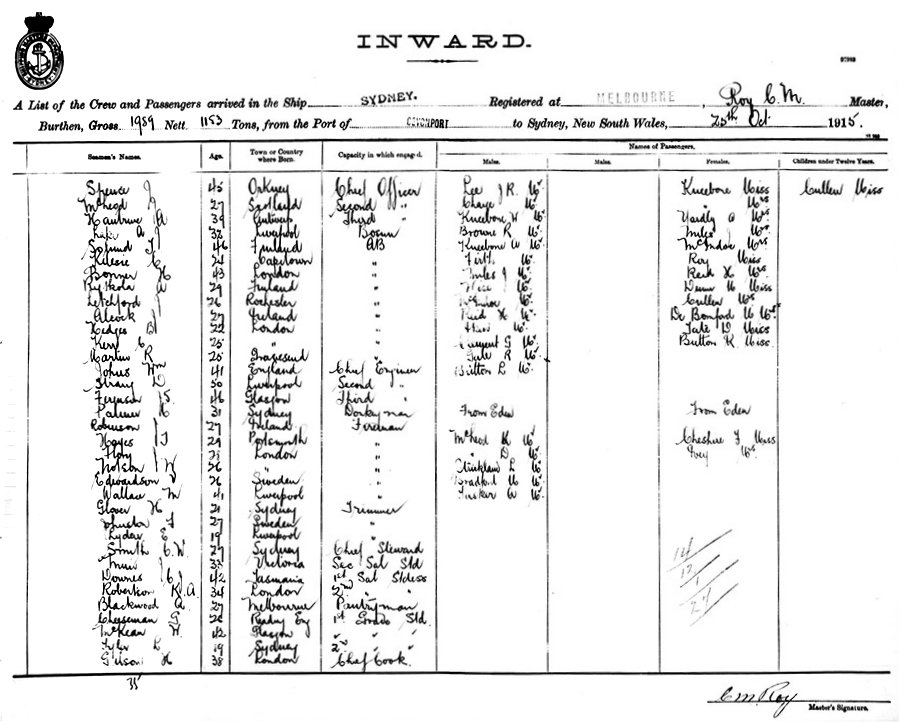 INWARD.
A List of the Crew and Passengers arrived in the Ship SYDNEY. Registered at MELBOURNE, Roy C. M. Master,
Burthen, Gross 1959 Nett. 1153 Tons, from the Port of DEVONPORT to Sydney, New South Wales, 25th Oct 1915.
Names of Passengers.
Seamen's Names. Age. Town or Country where Born. Capacity in which engaged. Males. Males. Females. Children under Twelve Years.
Spence J 45 Orkney Chief Officer Lee J R Mr Kneebone Miss Cullen Miss
McLeod J 27 Scotland Second " Mr " Mrs
A 39 Antwerp Third " Kneebone W Mr Yardly A Mrs
Lake A 32 Liverpool Bosun Browne R Mr Miles J Mrs
46 Finland AB Kneebone W Mr Mrs
24 Capetown " Firth Mr Roy Miss
Bonner H 43 London " Miles J Mr Reid H Mrs
29 Finland " Wise Mr Miss
Letchford 26 Rochester " Mr Cullen Mrs
Alcock 27 Ireland " Reid H Mr De Bomford Mrs
Hedges B 22 London " Mr Tate D Miss
Kerr C 25 " " Sargent G Mr Button K Miss
Martin R 25 Gravesend " Tule R Mr
Johns Wm 41 England Chief Engineer Britton L Mr
Strang D 50 Liverpool Second "
Ferguson S 46 Glasgow Third "
Palmer H 31 Sydney Donkeyman From Eden From Eden
Robinson 27 Ireland Fireman
Hayes T 29 Portsmouth " McLeod K Mr Cheshire F Miss
Flory London " " D Mr Ivey Mrs
W 26 " " Strickland L Mr
Edwardson 26 Sweden " Bradford Mr
Wallace M 41 Liverpool " Tucker W Mr
Glover H 21 Sydney Trimmer
Johnston J 27 Sweden "
Lydon E 19 Liverpool "
Smith C. W. 27 Sydney Chief Steward 14
Muir 33 Victoria Sec Sal Std 12
Downes C J 42 Tasmania 1st Sal Stdess 1
Robertson K. A. 34 London 2nd " " 27
Blackwood Q 27 Melbourne Pantryman
Cheeseman G 26 Reading Eng 1st Grade Std.
McKean W. 42 Glasgow " " "
Tyler L 19 Sydney 2nd " "
Gilson H 38 London Chef Cook
35
C M. Roy
Master's Signature.